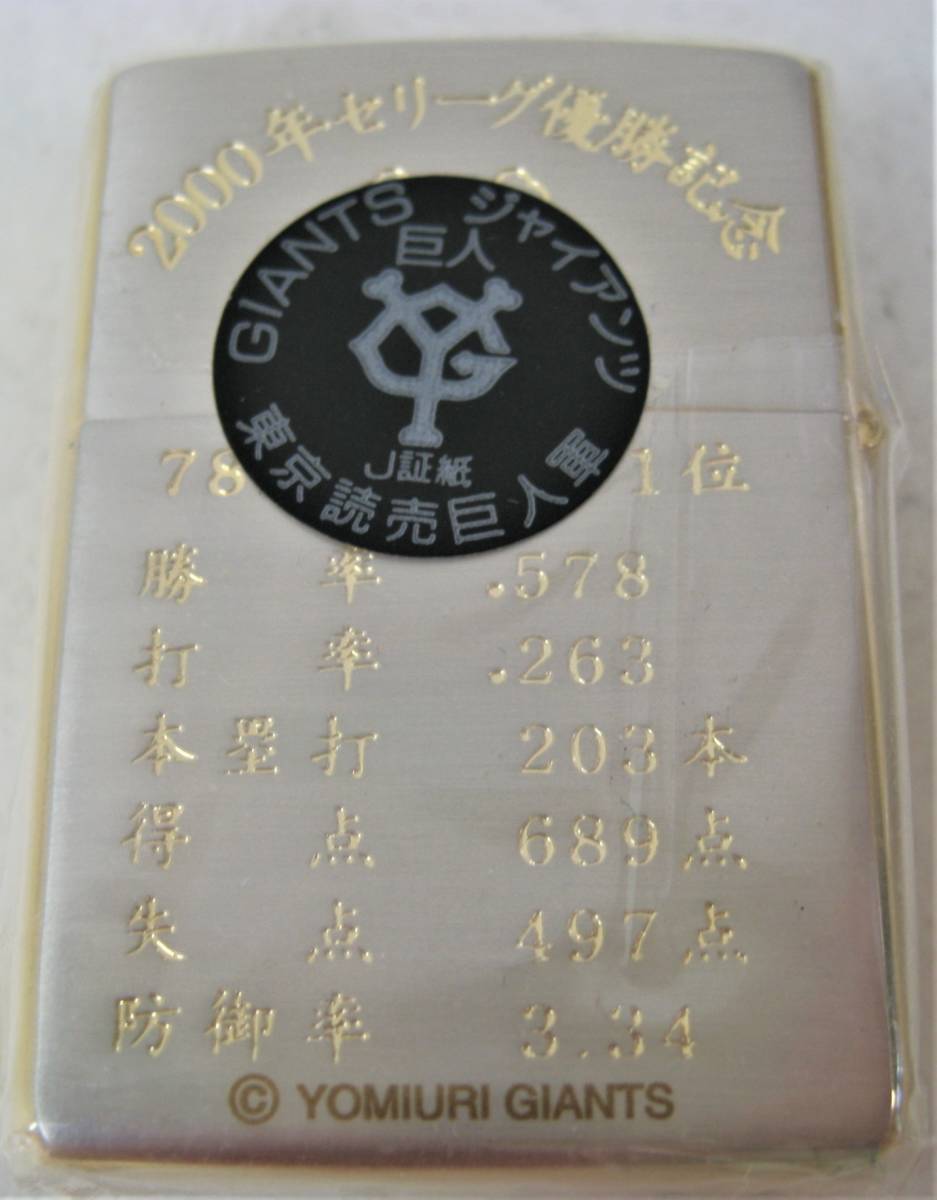 2000年セリーグ優勝記念
GIANTS ジャイアンツ
巨人
J証紙
東京読売巨人軍
78 1位
勝率 .578
打率 .263
本塁打 203本
得点 689点
失点 497点
防御率 3.34
© YOMIURI GIANTS